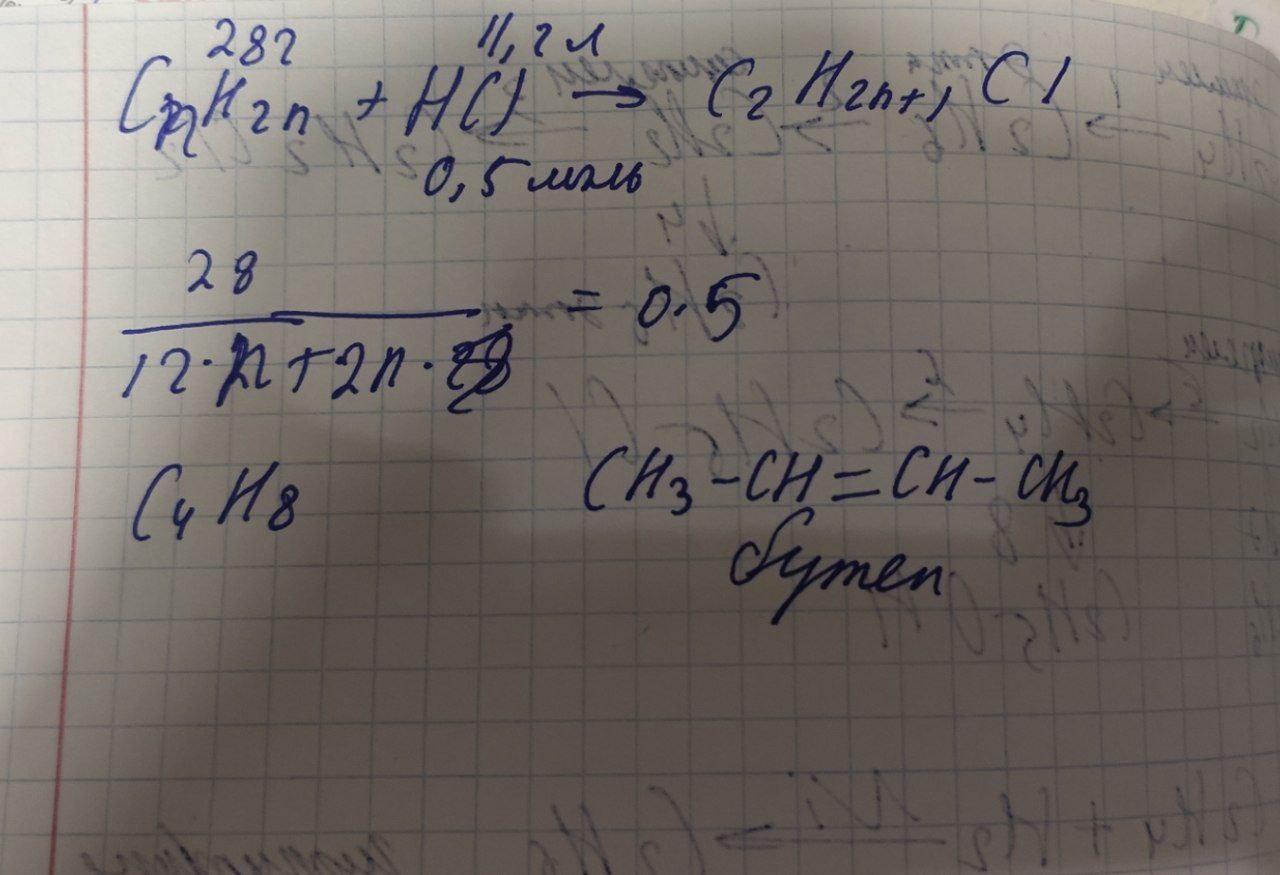 28г 11,2л
CnH2n + HCl → C2H2n+1Cl
0,5 моль
28
12·n+2n· = 0.5
C4H8 CH3-CH=CH-CH3
бутен